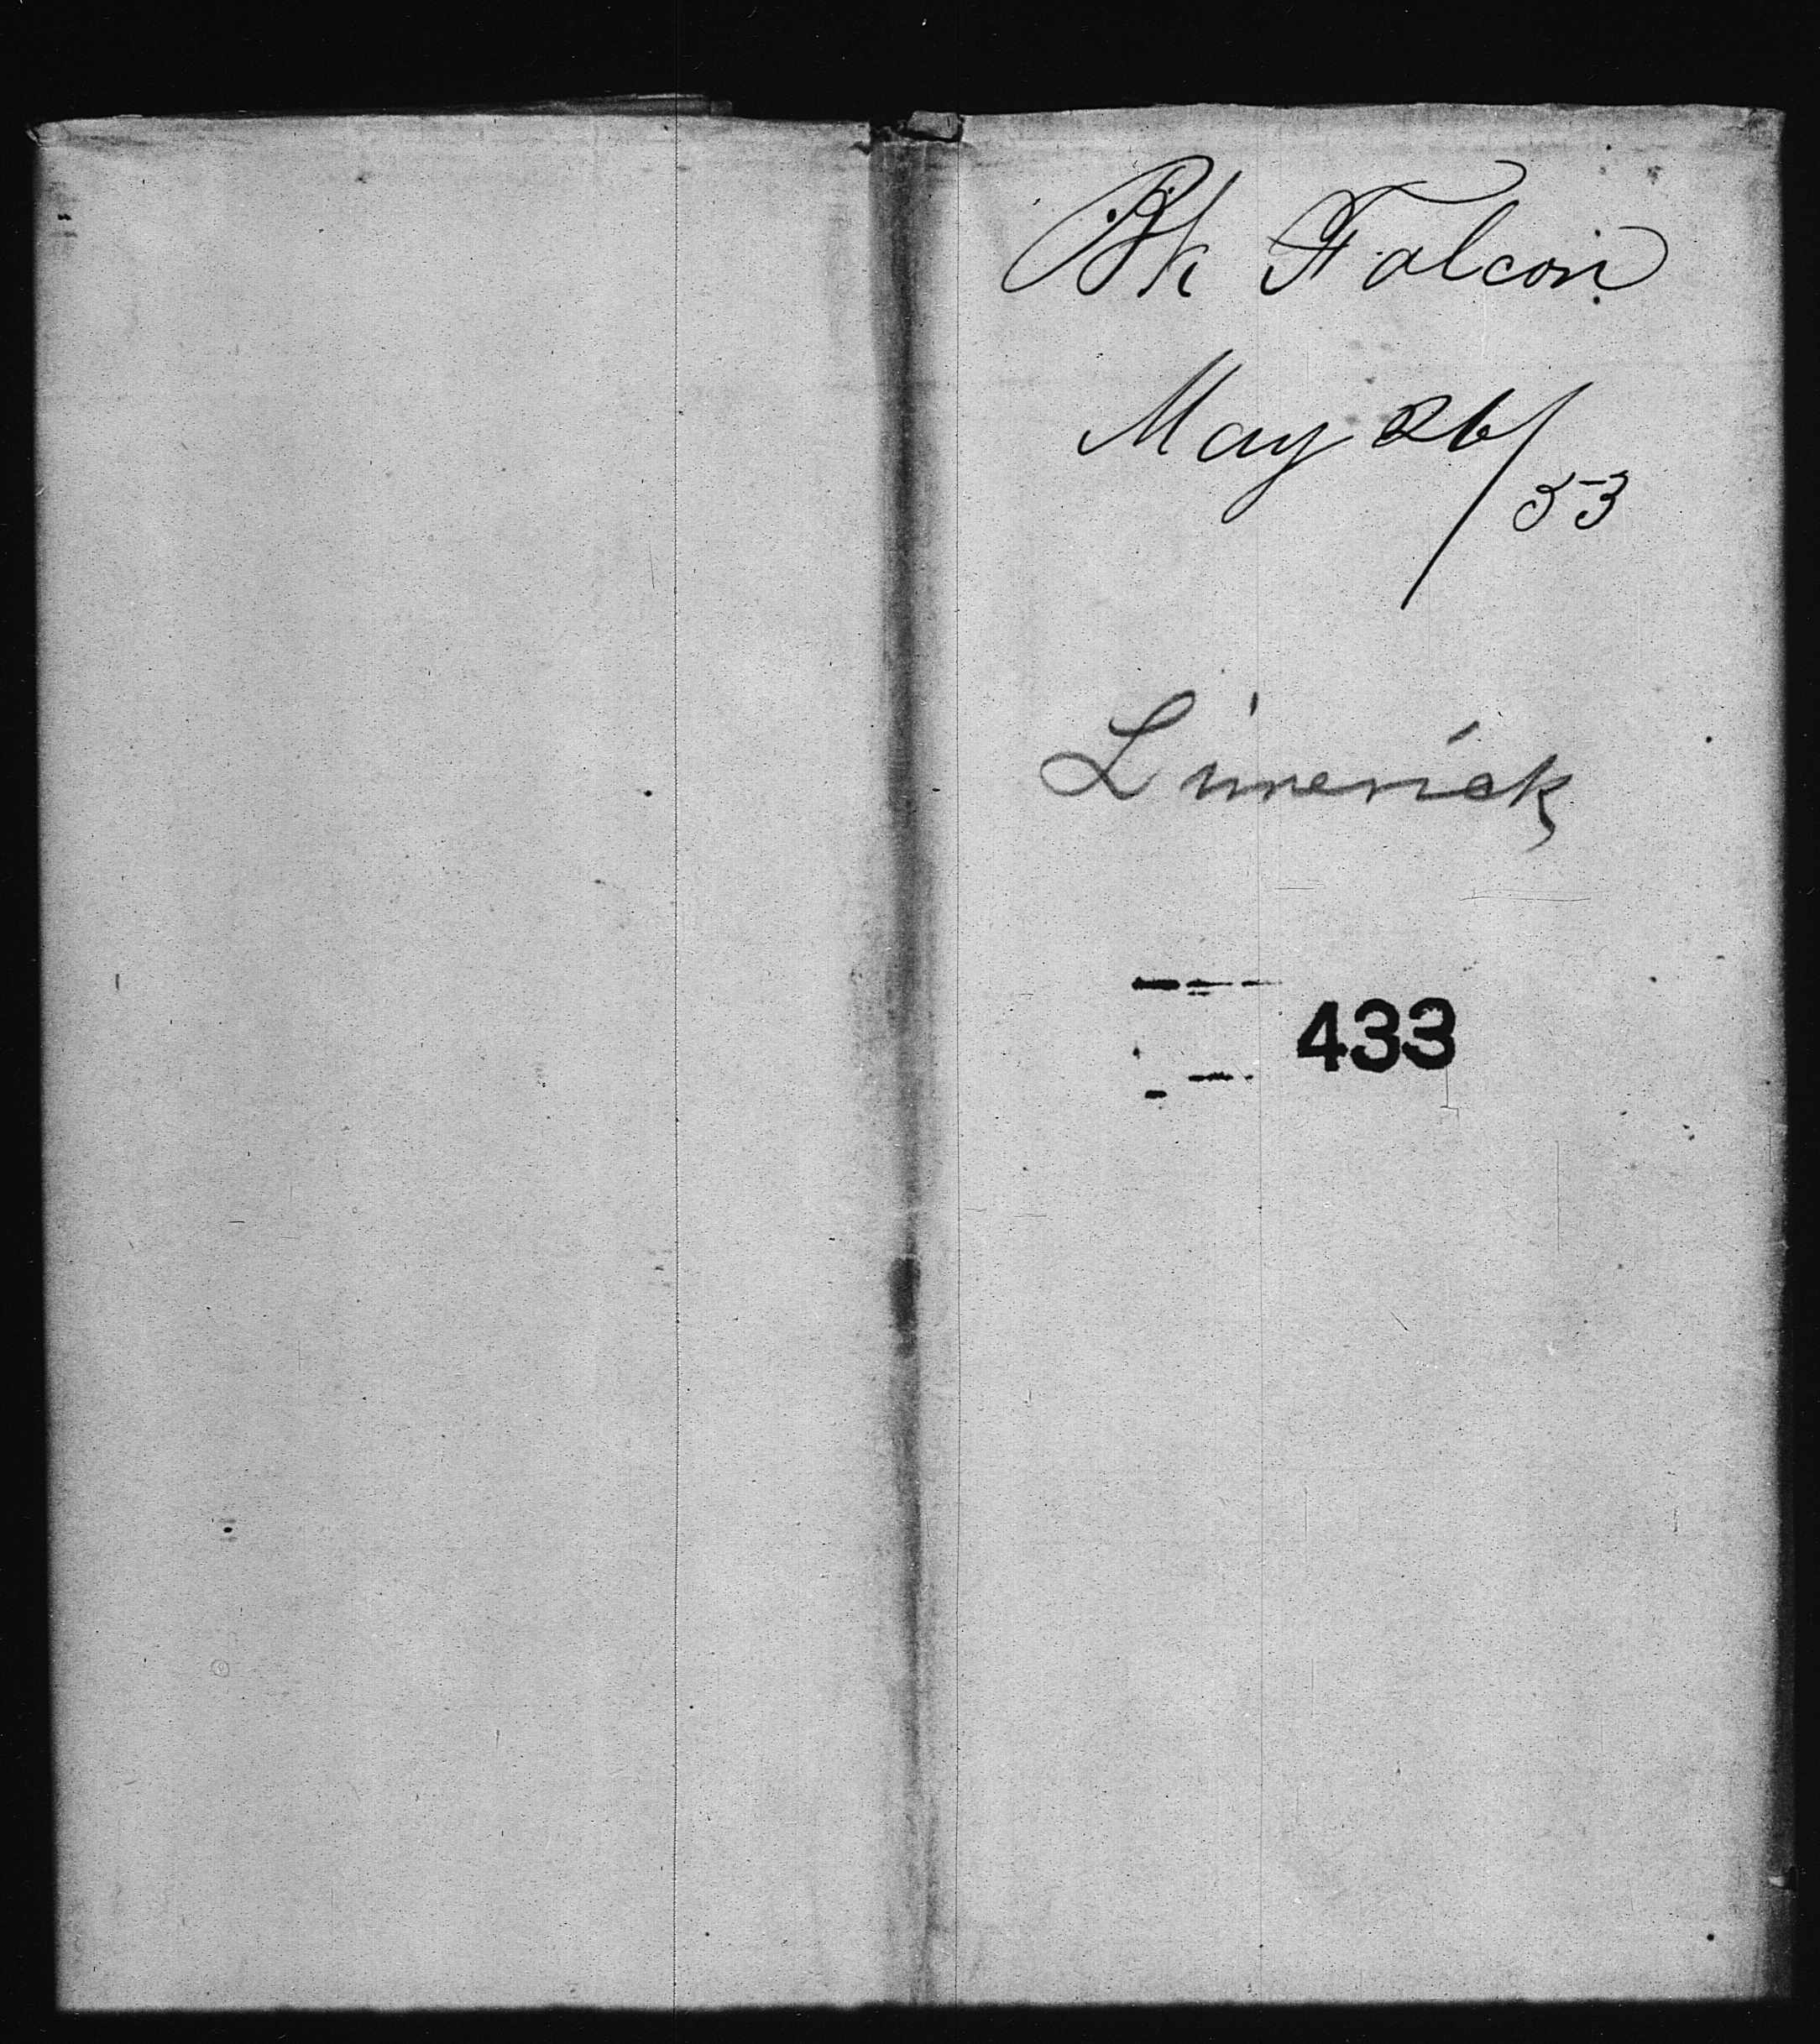 Bk Falcon
May 26/53
Limerick
433